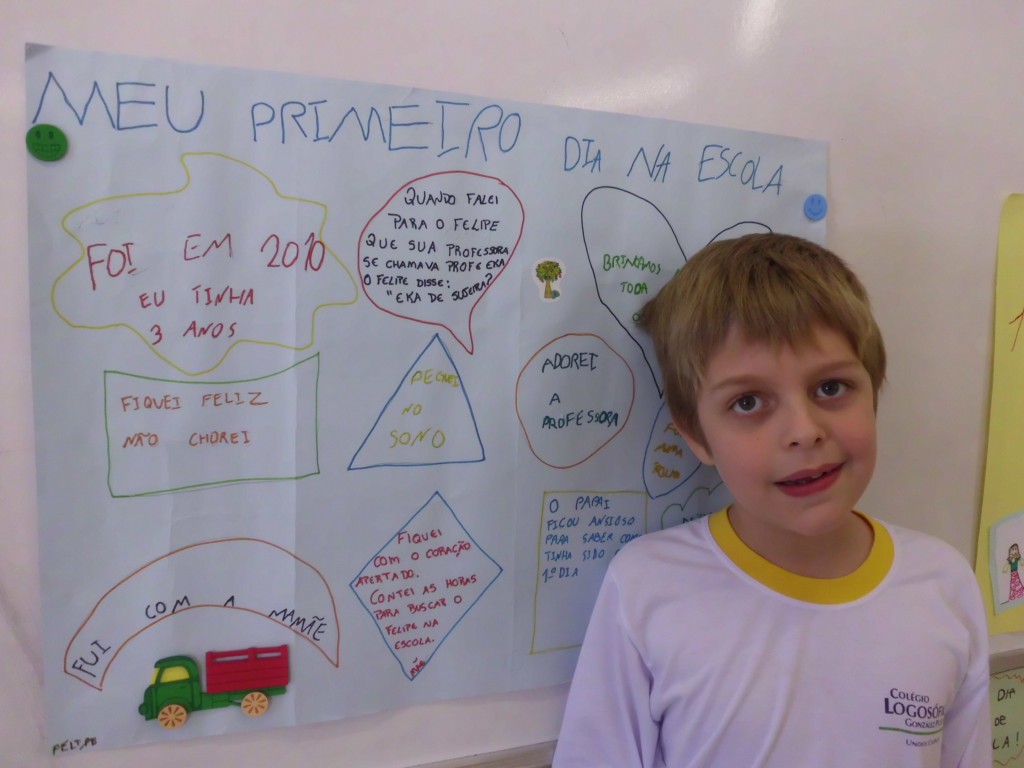 MEU PRIMEIRO DIA NA ESCOLA
FOI EM 2010
EU TINHA
3 ANOS
QUANDO FALEI
PARA O FELIPE
QUE SUA PROFESSORA
SE CHAMAVA PROFª EKA
O FELIPE DISSE:
"EKA DE SUJEIRA?
BRINCAMOS
TODA
FIQUEI FELIZ
NÃO CHOREI
PEGUEI
NO
SONO
ADOREI
A
PROFESSORA
O PAPAI
FICOU ANSIOSO
PARA SABER COMO
TINHA SIDO
1º DIA
FIQUEI
COM O CORAÇÃO
APERTADO.
CONTEI AS HORAS
PARA BUSCAR O
FELIPE NA
ESCOLA.
FUI COM A MAMÃE
FELIPE
COLÉGIO
LOGOSÓF
GONZALEZ
DIA
DE
LA!